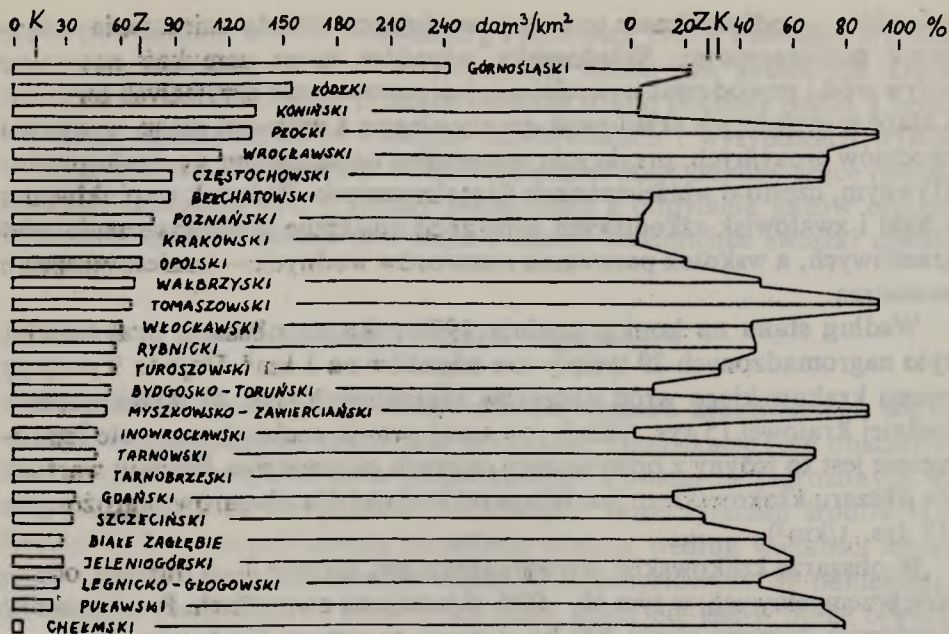 0 K 30 60 Z 90 120 150 180 210 240 dam³/km² 0 20 ZK 40 60 80 100 %
GÓRNOŚLĄSKI
ŁÓDZKI
KONIŃSKI
PŁOCKI
WROCŁAWSKI
CZĘSTOCHOWSKI
BEŁCHATOWSKI
POZNAŃSKI
KRAKOWSKI
OPOLSKI
WAŁBRZYSKI
TOMASZOWSKI
WŁOCŁAWSKI
RYBNICKI
TUROSZOWSKI
BYDGOSKO-TORUŃSKI
MYSZKOWSKO-ZAWIERCIAŃSKI
INOWROCŁAWSKI
TARNOWSKI
TARNOBRZESKI
GDAŃSKI
SZCZECIŃSKI
BIAŁE ZAGŁĘBIE
JELENIOGÓRSKI
LEGNICKO-GŁOGOWSKI
PUŁAWSKI
CHEŁMSKI